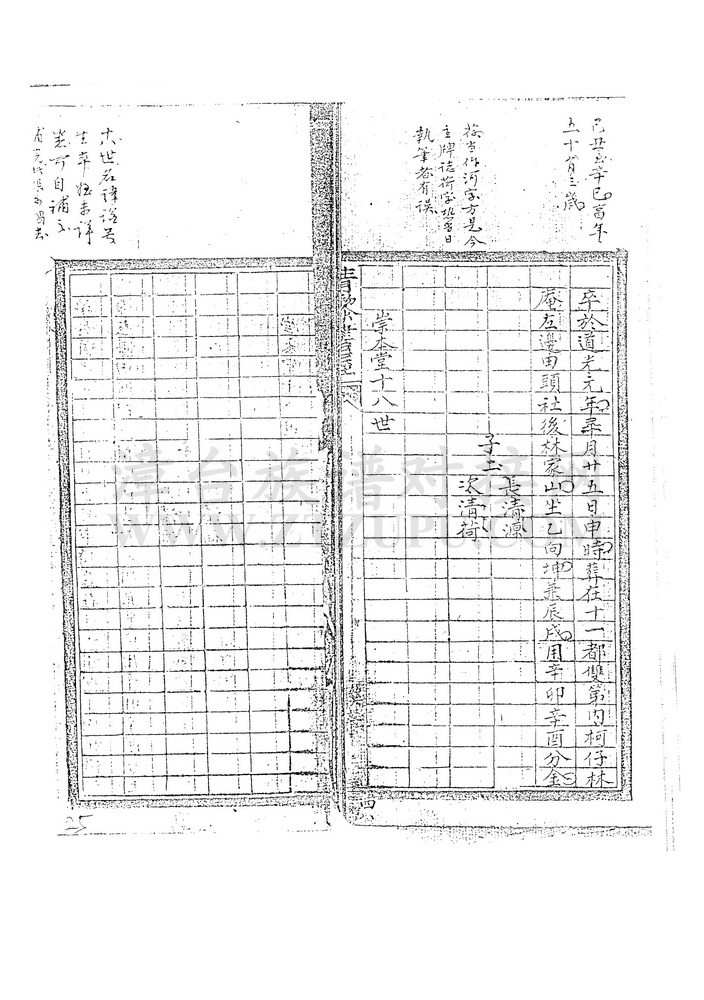 己丑至辛巳享年
五十有三歲
按當作河字方是今
主牌誌荷字恐當日
執筆者有誤
卒於道光元年 月廿五日申時葬在十一都雙第內柯仔林
庵左邊田頭社後林家山坐乙向坤兼辰戌用辛卯辛酉分金
子二
長清源
次清荷
崇本堂十八世
十八世名諱諡號
生卒 未詳
自補之
漳台族谱对接网
WWW.ZTZUPU.COM
25